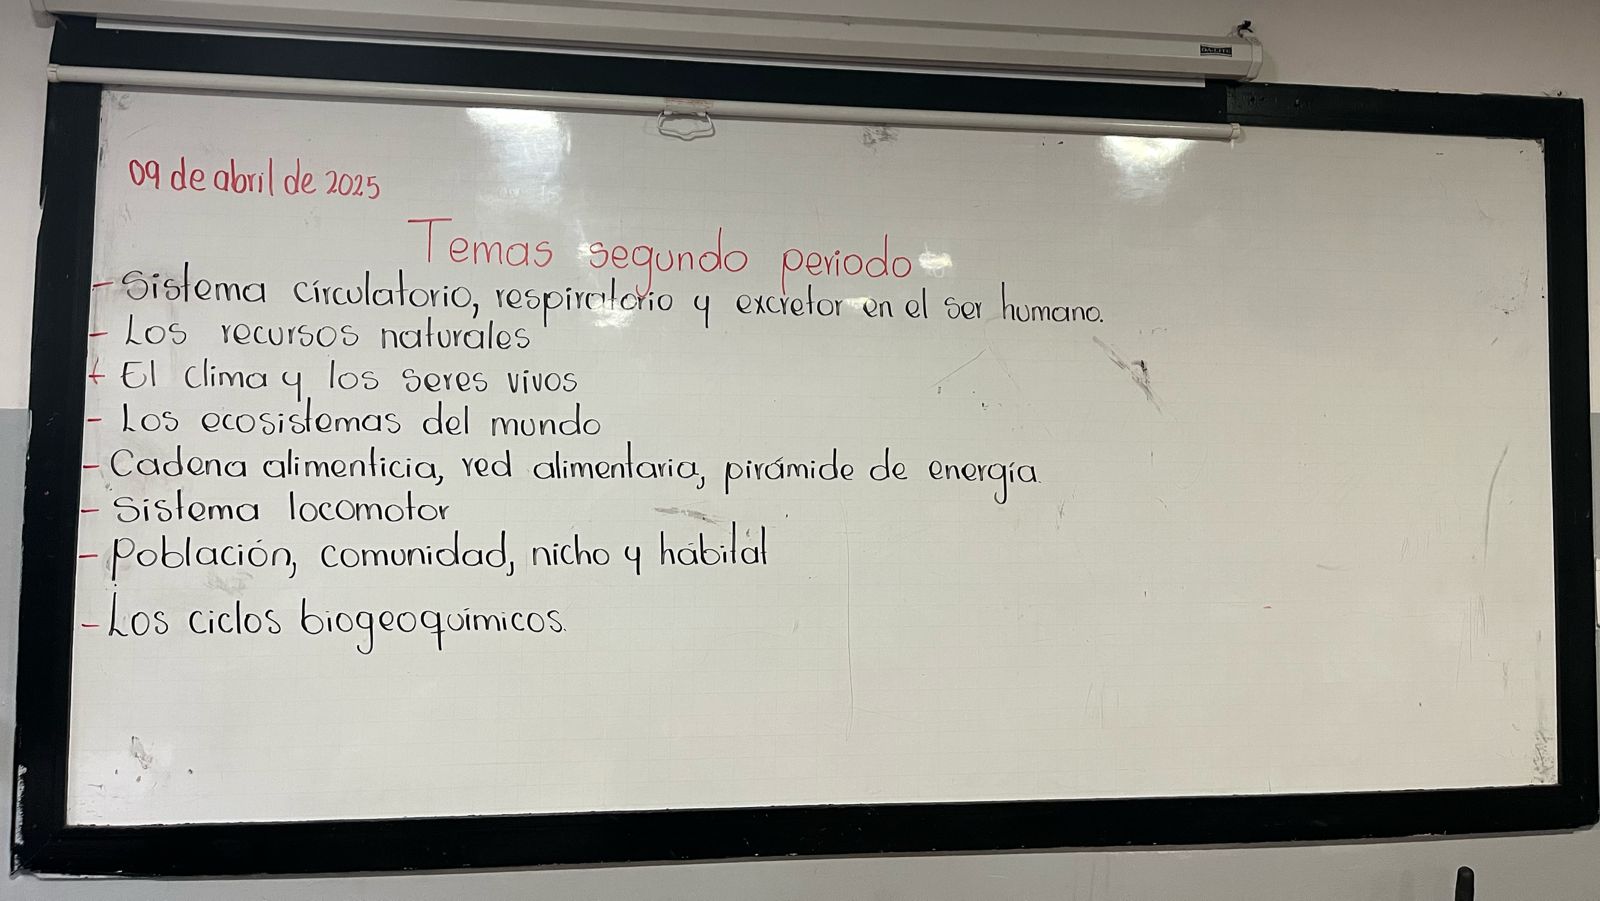 DA-LITE
09 de abril de 2025
Temas segundo periodo
- Sistema círculatorio, respiratorio y excretor en el ser humano.
- Los recursos naturales
- El clima y los seres vivos
- Los ecosistemas del mundo
- Cadena alimenticia, red alimentaria, pirámide de energía.
- Sistema locomotor
- Población, comunidad, nicho y hábitat
- Los ciclos biogeoquímicos.